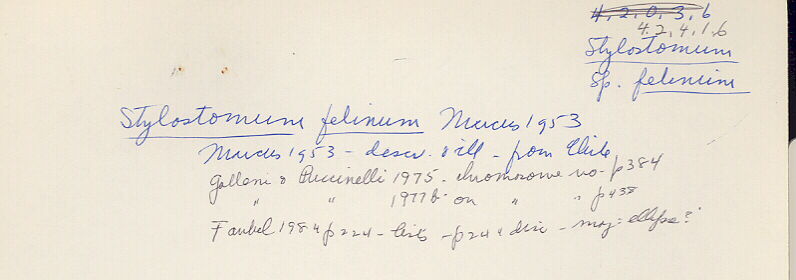 4, 2, 0, 3, 6
4, 2, 4, 1, 6
Stylostomum
sp. felinum
Stylostomum felinum Marcus 1953
Marcus 1953 - descr. & ill - from Chile
Galleni & Puccinelli 1975. chromosome no. p384
" " 1977b on " " p438
Faubel 1984 p224 - lists - p244 disc -